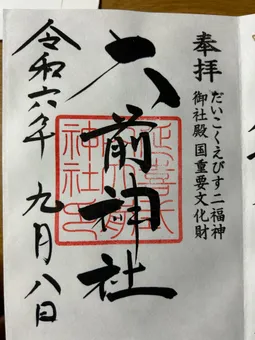 奉拝
だいこくえびす二福神
御社殿 国重要文化財
大前神社
令和六年九月八日